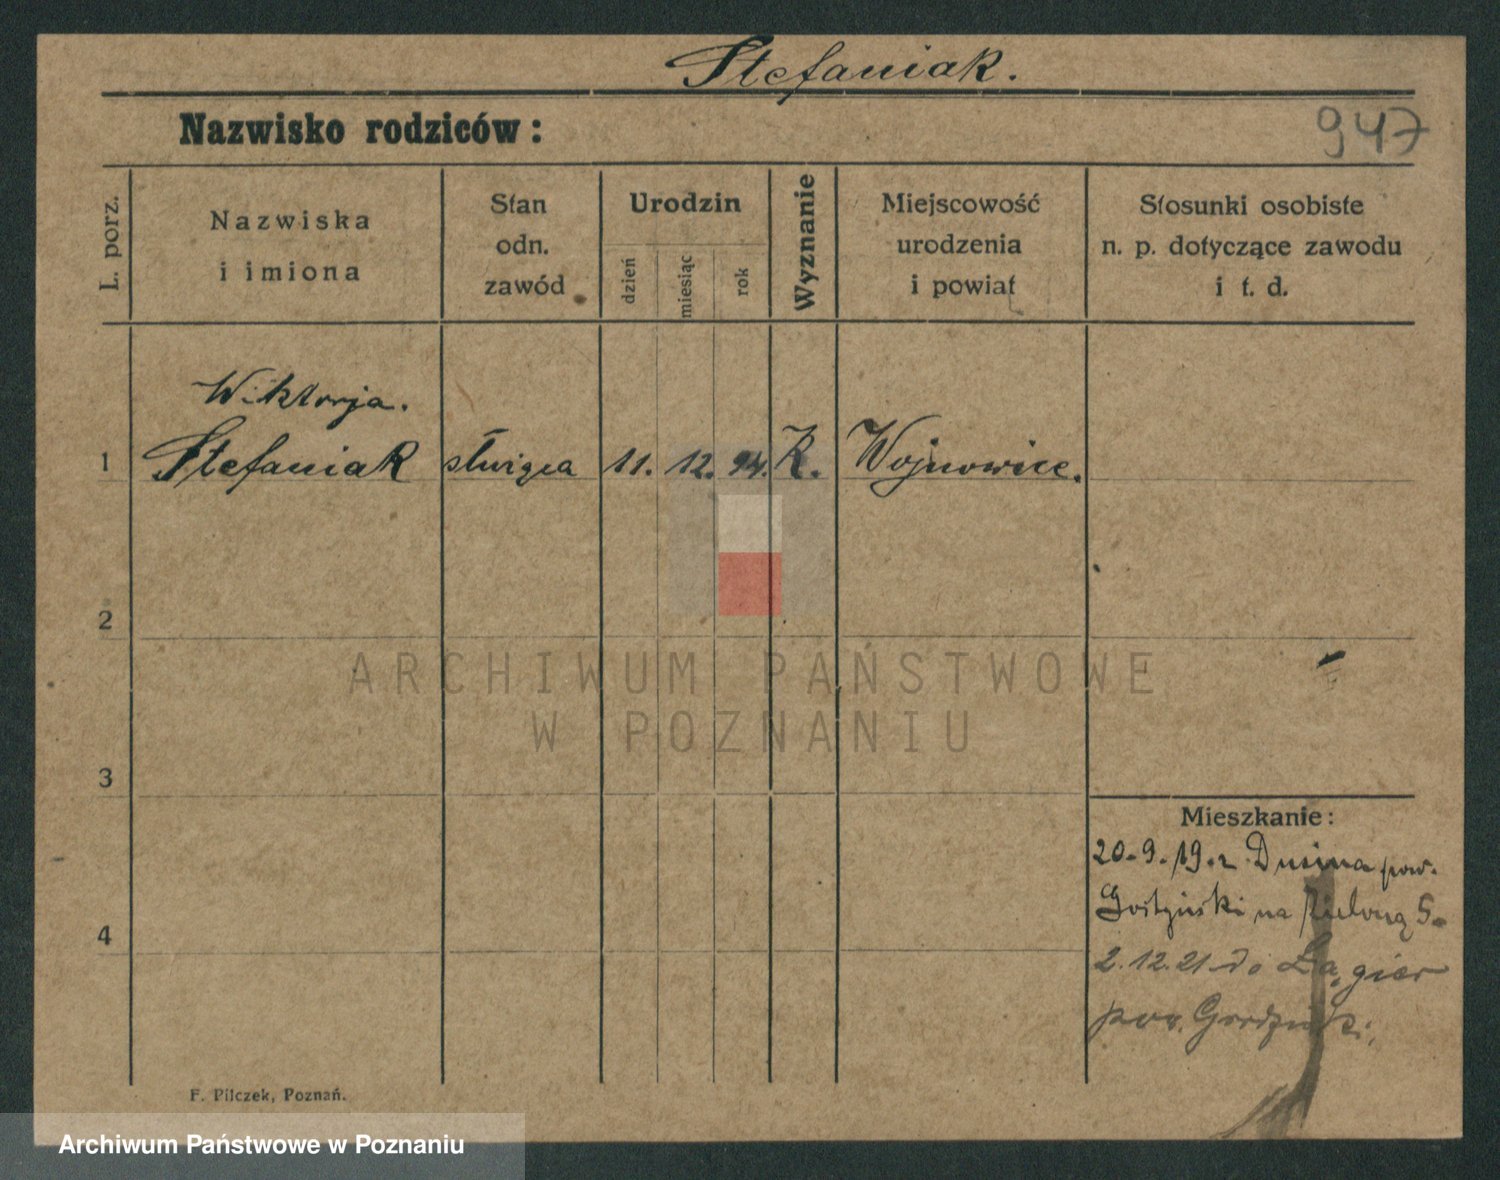 Stefaniak.
Nazwisko rodziców:
947
L. porz.
Nazwiska
i imiona
Stan
odn.
zawód
Urodzin
dzień
miesiąc
rok
Wyznanie
Miejscowość
urodzenia
i powiat
Stosunki osobiste
n. p. dotyczące zawodu
i t. d.
Wiktorja.
1 Stefaniak służąca 11. 12. 94. K. Wojnowice.
2
ARCHIWUM PAŃSTWOWE
W POZNANIU
3
Mieszkanie:
20.9.19. z Dusina pow.
Gostyński na Zieloną 5.
4
2.12.21 do
pow.
F. Pilczek, Poznań.
Archiwum Państwowe w Poznaniu